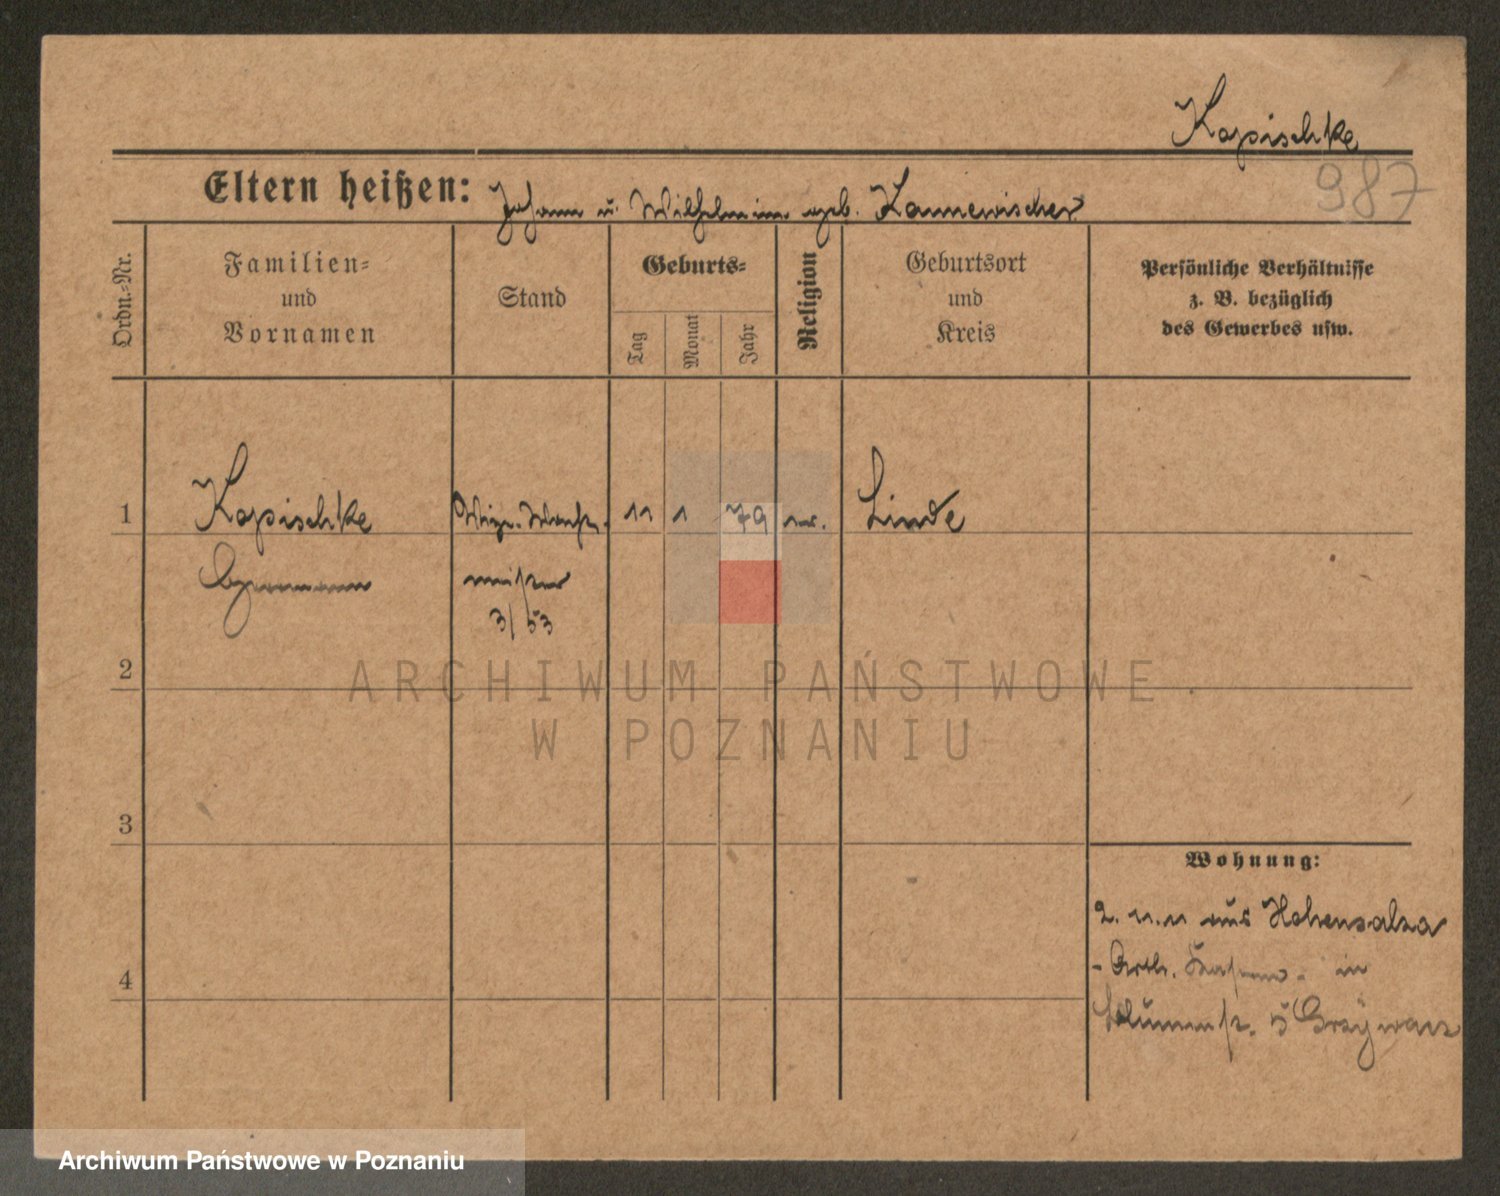 Kapischke
987
Eltern heißen: Johann u. Wilhelmine geb. Kannewischer
Ordn.-Nr.
Familien-
und
Vornamen
Stand
Geburts-
Tag
Monat
Jahr
Religion
Geburtsort
und
Kreis
Persönliche Verhältnisse
z. B. bezüglich
des Gewerbes usw.
1 Kapischke 11 1 79 ev. Linde
meister
3/53
2
3
4
Wohnung:
2. 11. 11 aus Hohensalza
- Artl. Kaserne - in
Blumenstr. 5 Grzywacz
ARCHIWUM PAŃSTWOWE
W POZNANIU
Archiwum Państwowe w Poznaniu